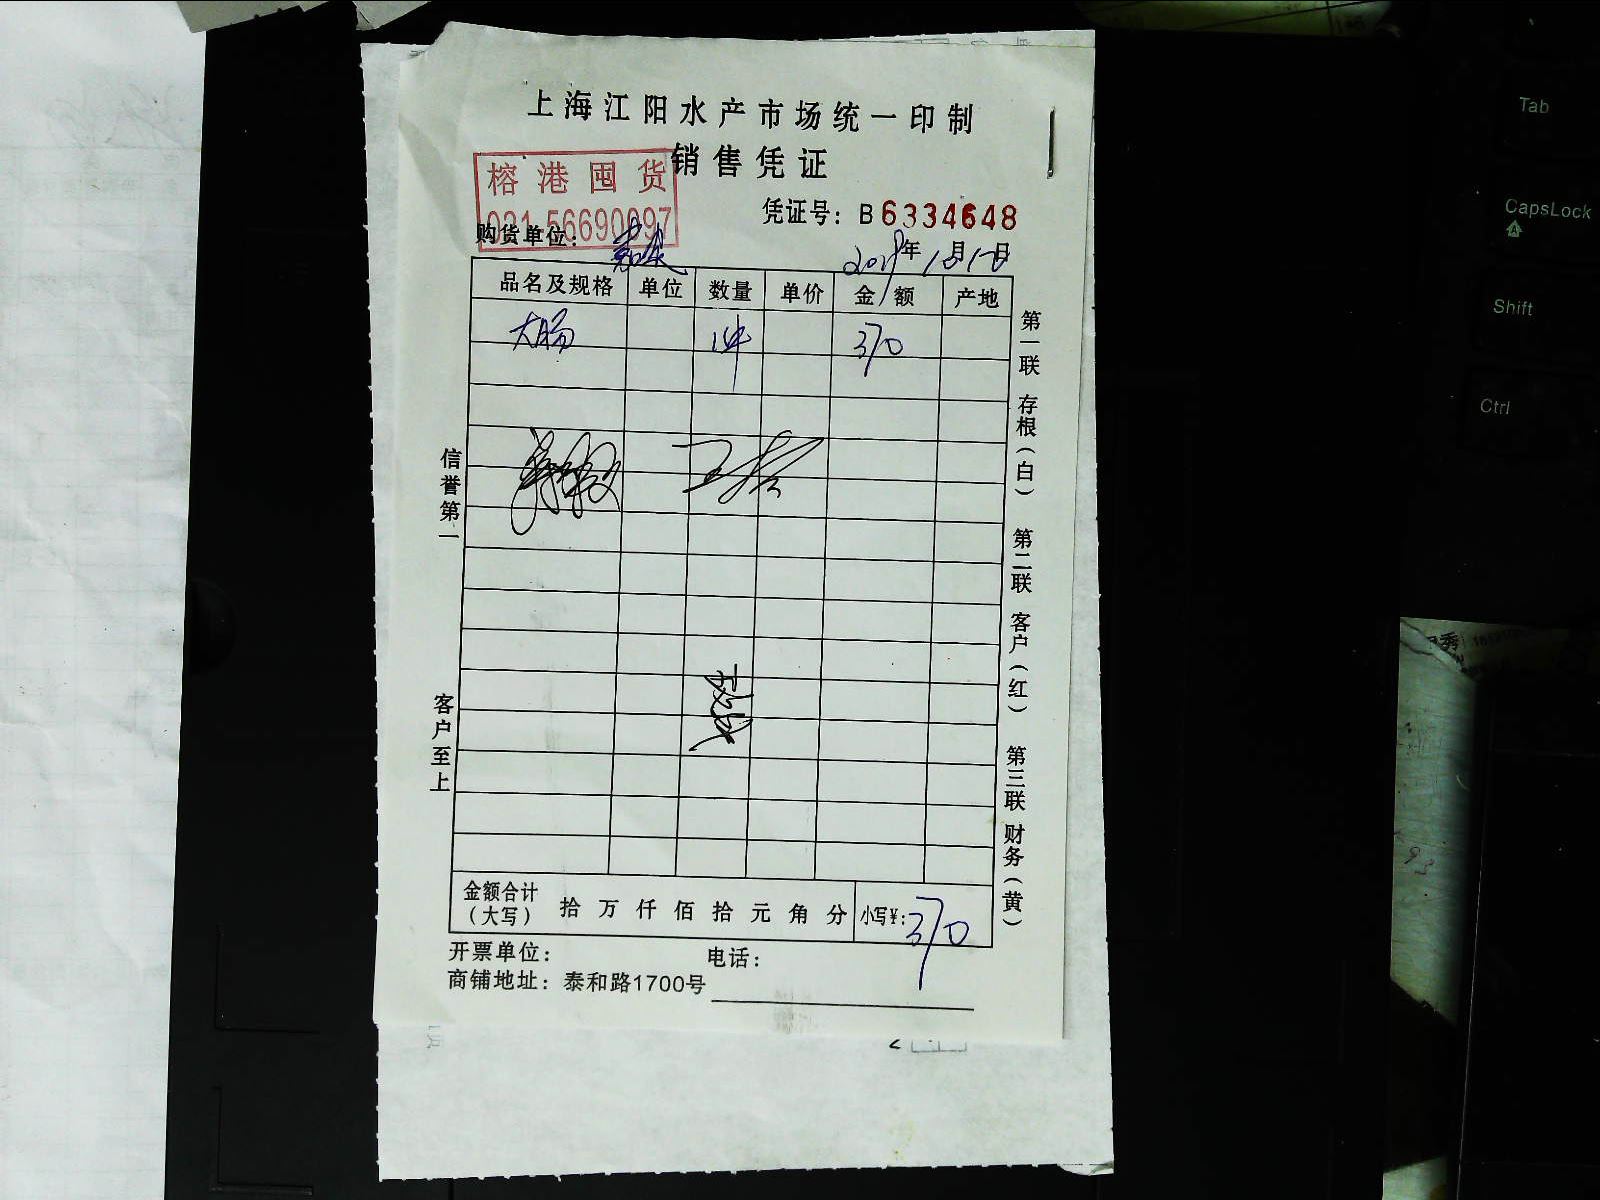 上海江阳水产市场统一印制
销售凭证
榕港囤货
021-56690097
凭证号：B6334648
购货单位：
年 月 日
品名及规格 单位 数量 单价 金额 产地
大肠 1件 370
信誉第一
客户至上
第一联 存根（白） 第二联 客户（红） 第三联 财务（黄）
金额合计（大写） 拾 万 仟 佰 拾 元 角 分 小写¥：370
开票单位： 电话：
商铺地址：泰和路1700号
Tab
CapsLock
A
Shift
Ctrl